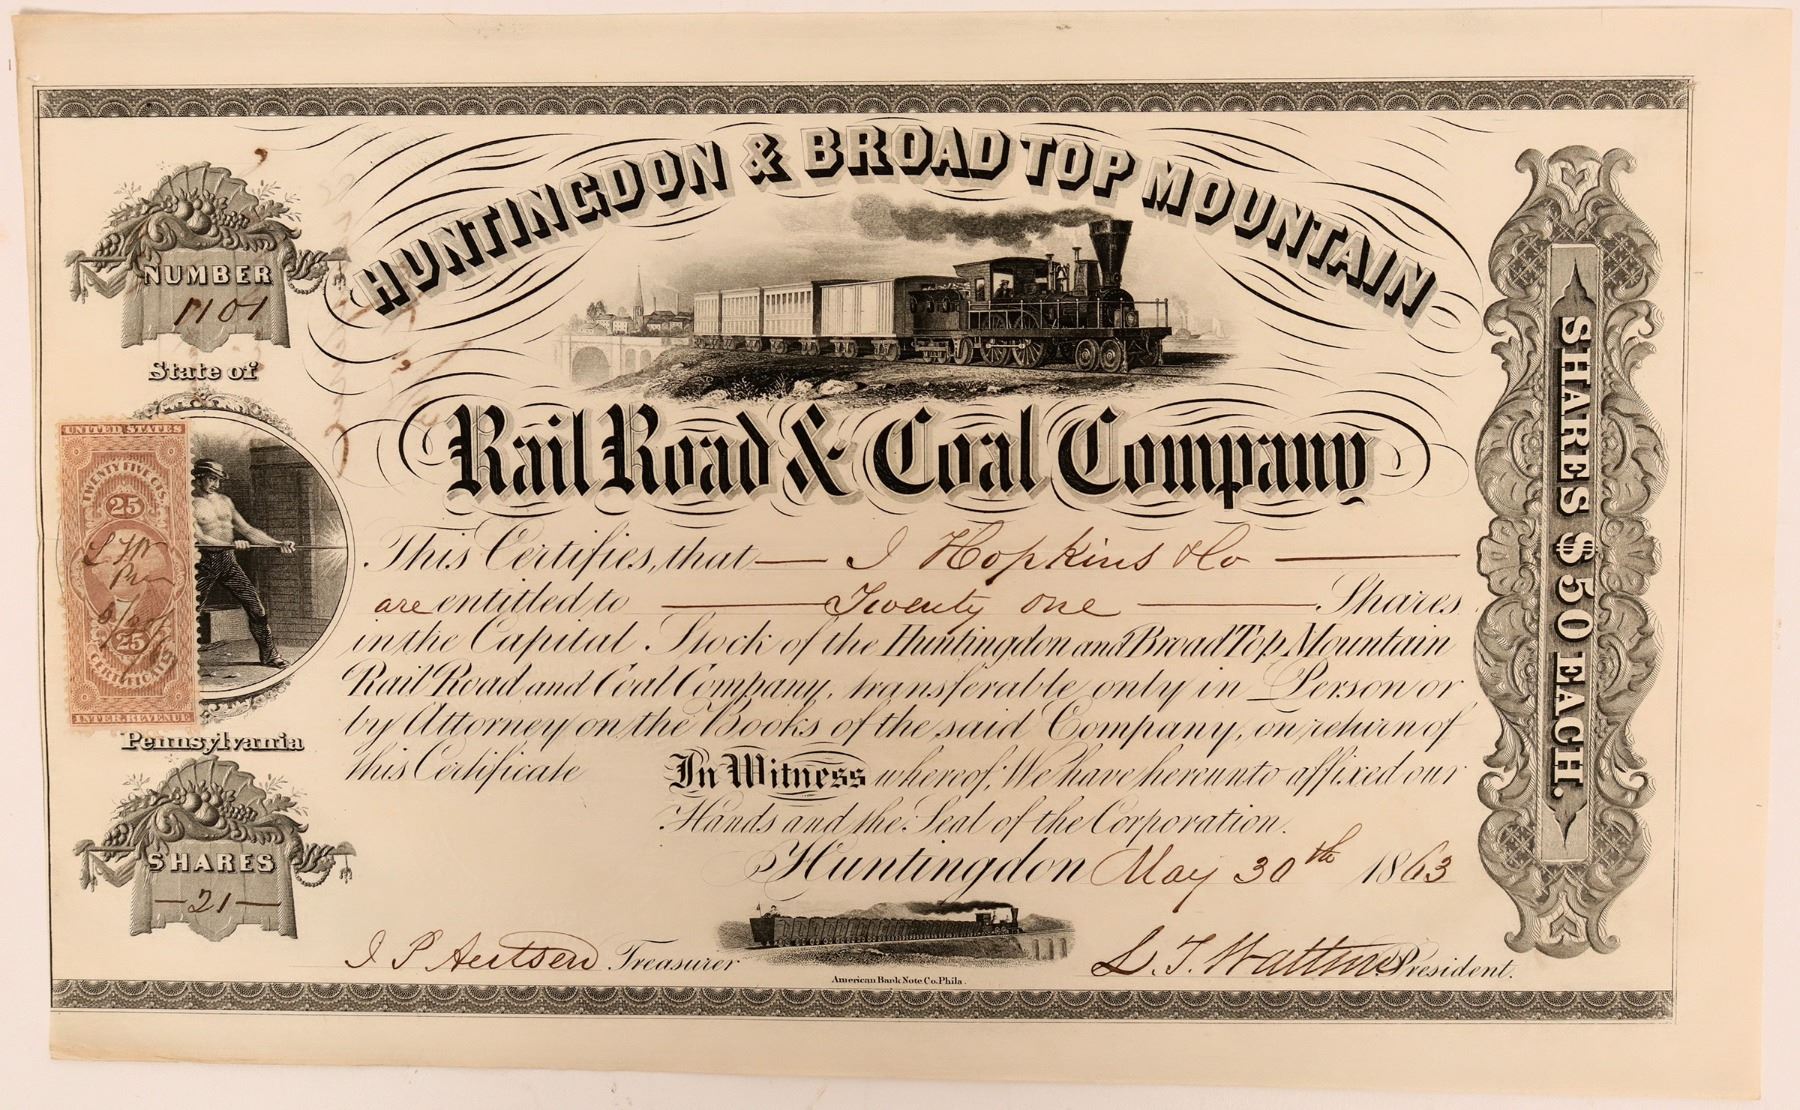 HUNTINGDON & BROAD TOP MOUNTAIN
Rail Road & Coal Company
NUMBER
1101
State of
UNITED STATES
TWENTY FIVE CTS.
25
L T W
Pr
5/30/63
25
CERTIFICATE
INTER. REVENUE
Pennsylvania
SHARES
—21—
This Certifies, that — J Hopkins & Co —
are entitled to — Twenty one — Shares
in the Capital Stock of the Huntingdon and Broad Top Mountain
Rail Road and Coal Company, transferable only in Person or
by Attorney on the Books of the said Company, on return of
this Certificate In Witness whereof, We have hereunto affixed our
Hands and the Seal of the Corporation.
Huntingdon May 30th 1863
J P Aertsen Treasurer
L. T. Wattson President.
American Bank Note Co. Phila.
SHARES $50 EACH.